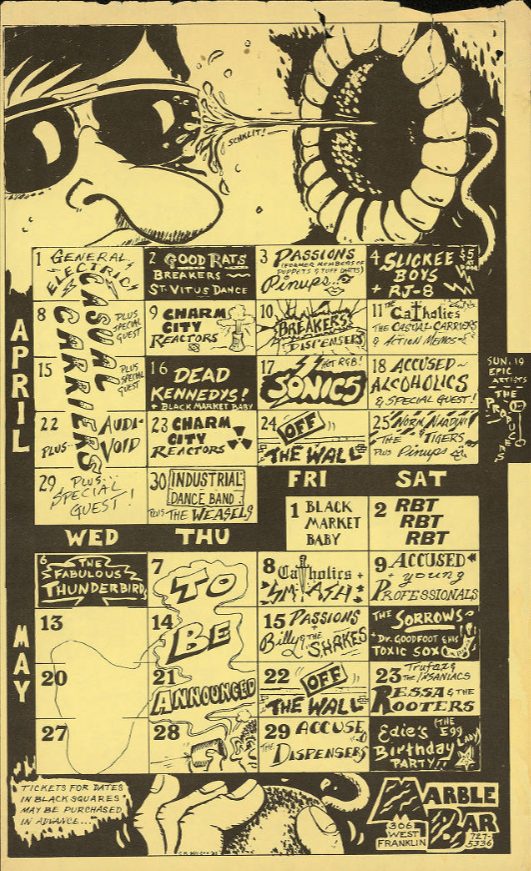 SCHKLIT!
APRIL
1 GENERAL
ELECTRIC
CASUAL
CARRIERS
2 GOOD RATS
BREAKERS
ST. VITUS DANCE
3 PASSIONS
(FORMER MEMBERS OF
Pinups
4 SLICKEE
BOYS
+ RJ-8
8 PLUS
SPECIAL
GUEST
9 CHARM
CITY
REACTORS
10 BREAKERS
DISPENSERS
11 THE CaTholics
THE CASUAL CARRIERS
& ACTION MEMOS
15 PLUS
SPECIAL
GUEST
16 DEAD
KENNEDYS!
+ BLACK MARKET BABY
17 NOT RGB!
SONICS
18 ACCUSED
ALCOHOLICS
& SPECIAL GUEST!
SUN. 19
EPIC
ARTISTS
THE
22 AUDI-
VOID
PLUS
23 CHARM
CITY
REACTORS
24 OFF
THE WALL
25 NORM NARDINI
& THE TIGERS
PLUS Pinups
29 PLUS...
SPECIAL
GUEST!
30 INDUSTRIAL
DANCE BAND
PLUS THE WEASELS
FRI SAT
1 BLACK
MARKET
BABY
2 RBT
RBT
RBT
WED THU
MAY
6 THE
FABULOUS
THUNDERBIRDS
7 TO
BE
ANNOUNCED
8 CaTholics +
SMASH
9 ACCUSED
young
PROFESSIONALS
13
14
15 PASSIONS
+
Billy & THE
SHAKES
THE SORROWS
+ DR. GOODFOOT & HIS
TOXIC SOX
20
21
22 OFF
THE WALL
23 Trufax &
THE INSANIACS
RESSA & THE
ROOTERS
27
28
29 ACCUSED
THE DISPENSERS
Edie's (THE
EGG
LADY)
Birthday
PARTY
TICKETS FOR DATES
IN BLACK SQUARES
MAY BE PURCHASED
IN ADVANCE...
MARBLE
BAR
306
WEST
FRANKLIN
727-
5336